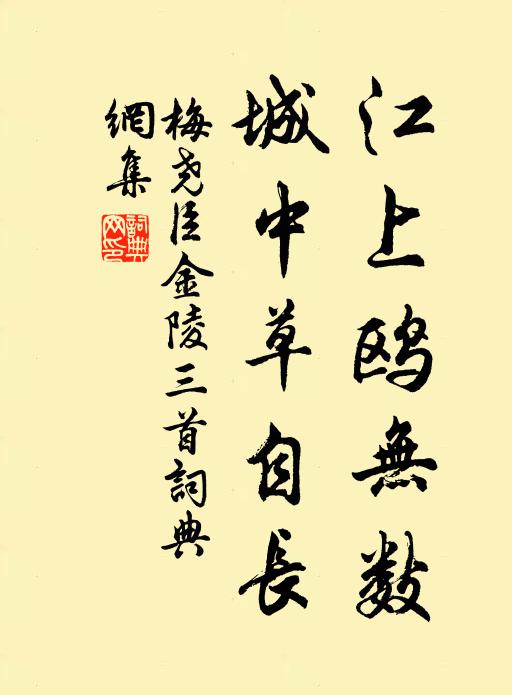 江上鸥無数
城中草自長
梅尧臣金陵三首詞典
網集
詞典網印